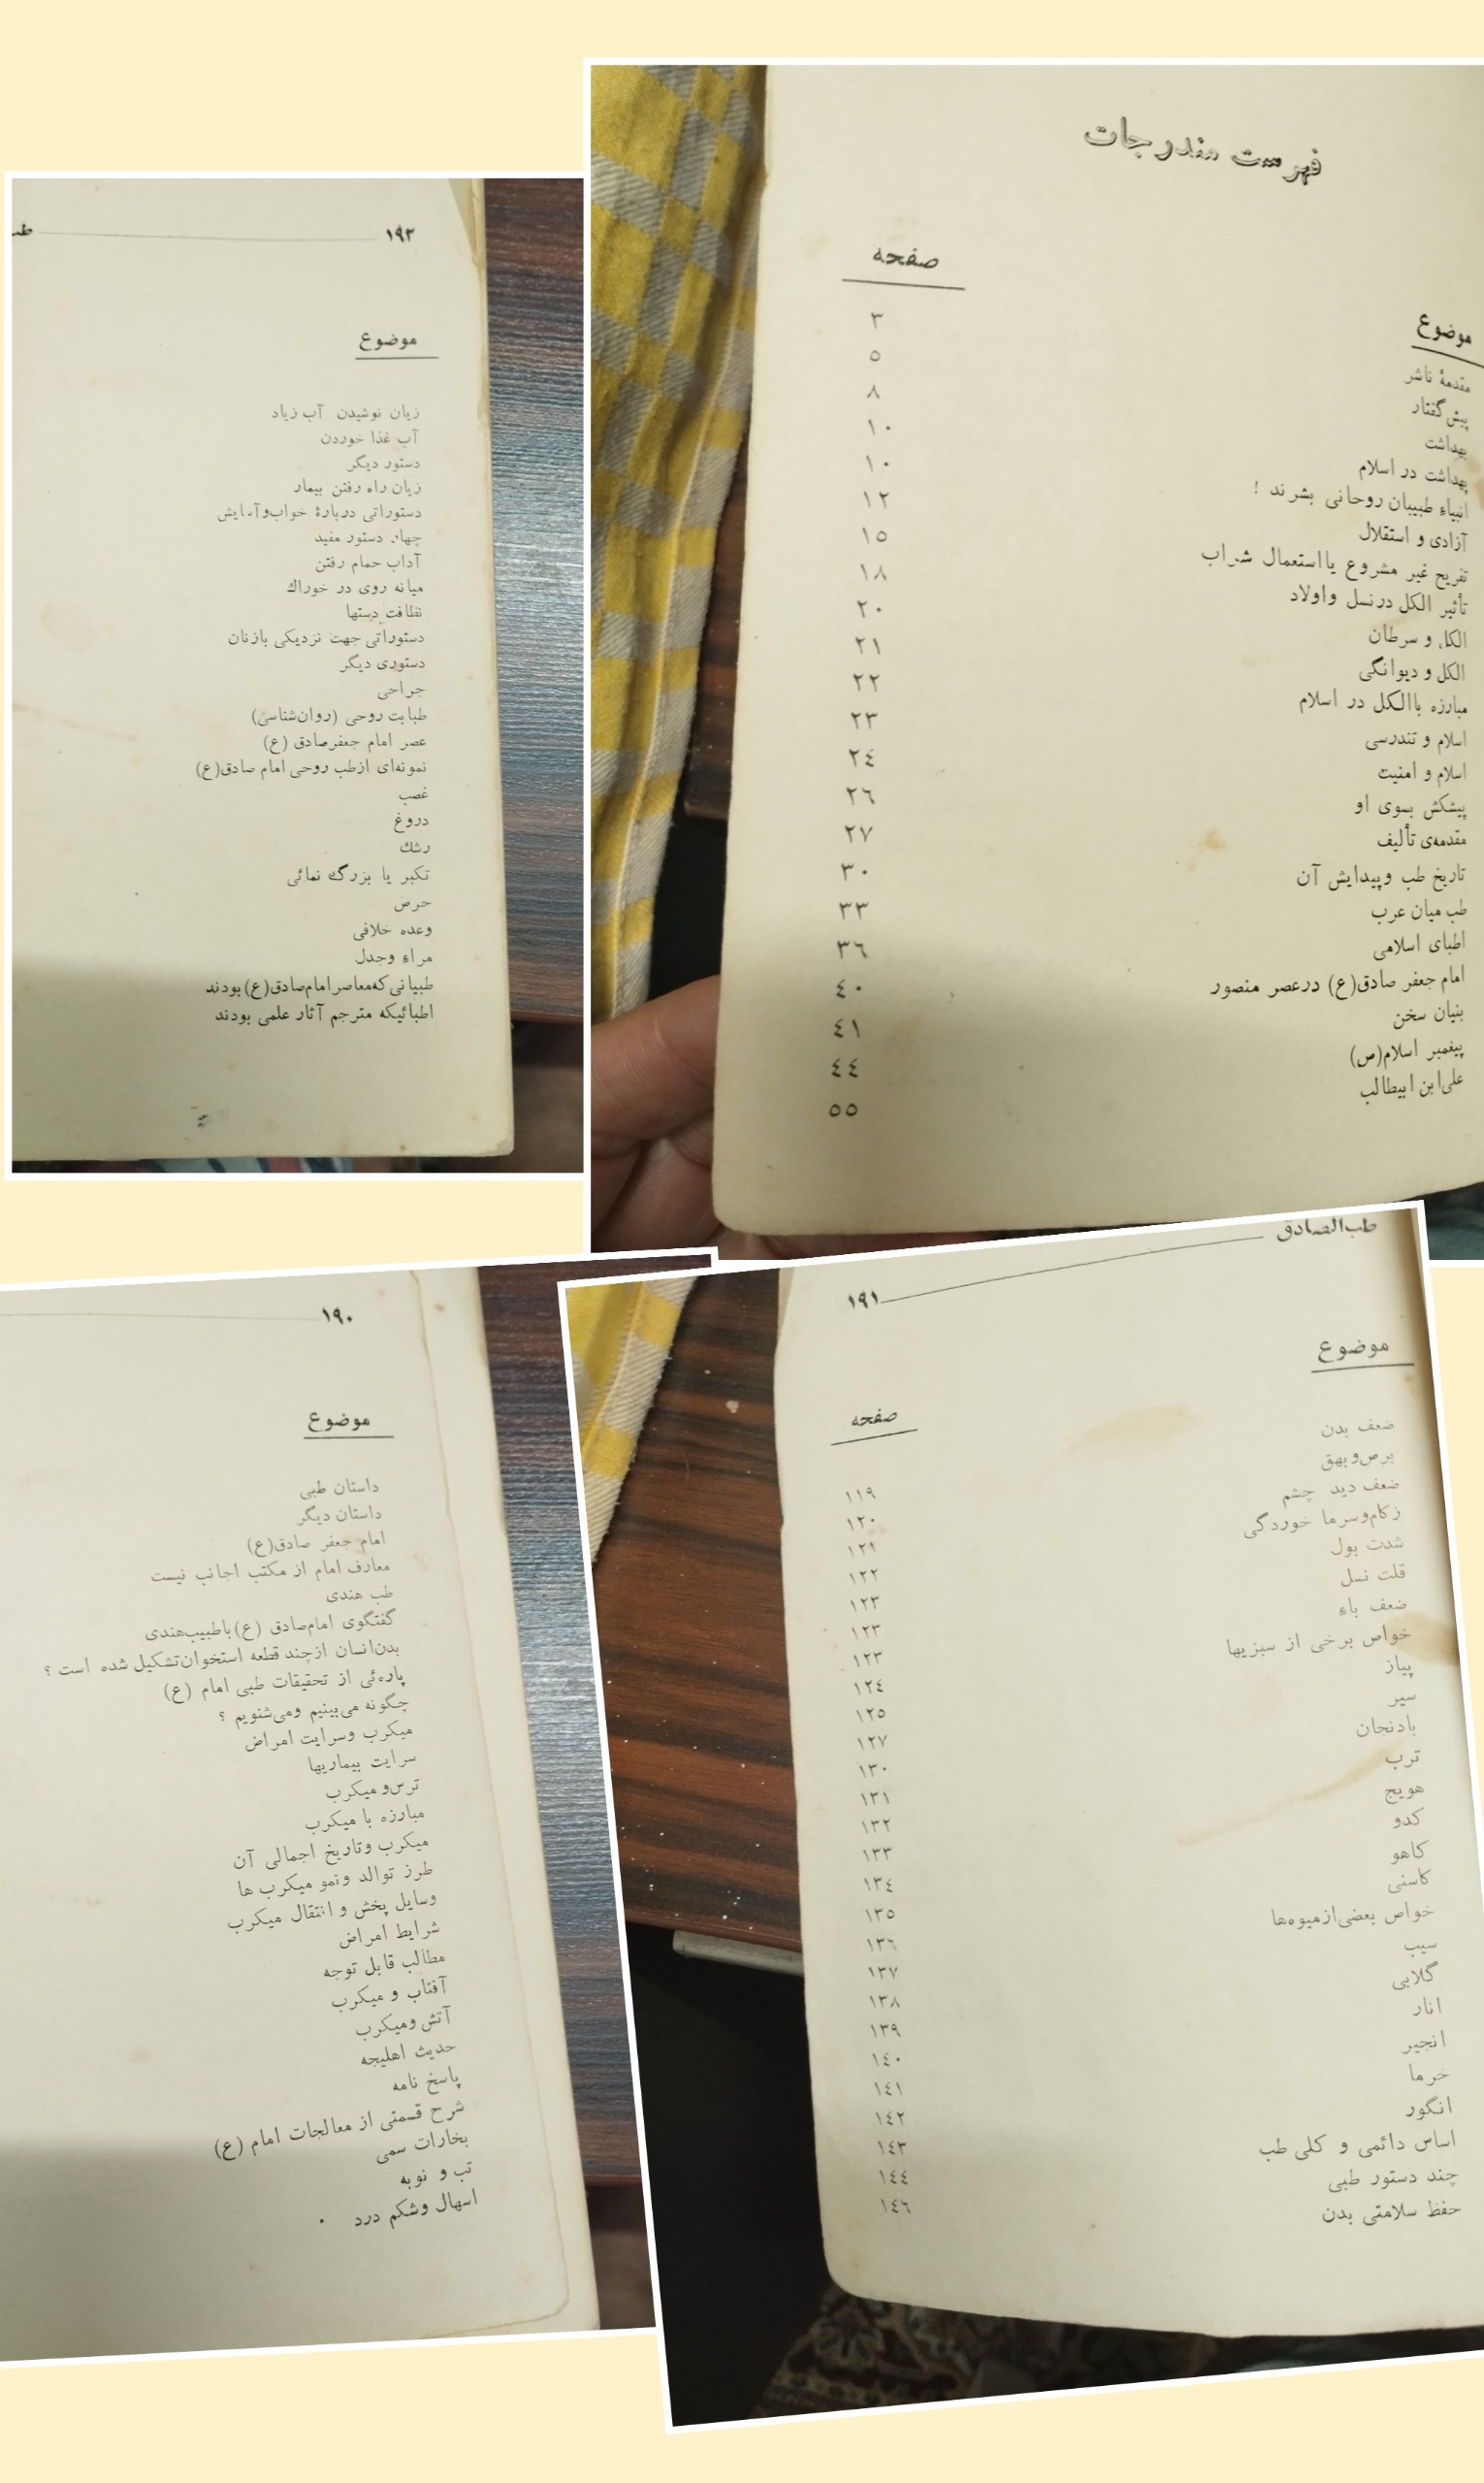 فهرست مندرجات
موضوع
صفحه
مقدمهٔ ناشر ٣
پیش‌گفتار ٥
بهداشت ٨
بهداشت در اسلام ١٠
انبیاء طبیبان روحانی بشرند ! ١٠
آزادی و استقلال ١٢
تفریح غیر مشروع یا استعمال شراب ١٥
تأثیر الکل درنسل واولاد ١٨
الکل و سرطان ٢٠
الکل و دیوانگی ٢١
مبارزه باالکل در اسلام ٢٢
اسلام و تندرسی ٢٣
اسلام و امنیت ٢٤
پیشکش بسوی او ٢٦
مقدمه‌ی تألیف ٢٧
تاریخ طب وپیدایش آن ٣٠
طب میان عرب ٣٣
اطبای اسلامی ٣٦
امام جعفر صادق(ع) درعصر منصور ٤٠
بنیان سخن ٤١
پیغمبر اسلام(ص) ٤٤
علی‌ابن ابیطالب ٥٥
١٩٢
موضوع
زیان نوشیدن آب زیاد
آب غذا خوردن
دستور دیگر
زیان راه رفتن بیمار
دستوراتی دربارهٔ خواب‌وآسایش
چهار دستور مفید
آداب حمام رفتن
میانه روی در خوراك
نظافت دستها
دستوراتی جهت نزدیکی بازنان
دستوری دیگر
جراحی
طبابت روحی (روان‌شناسی)
عصر امام جعفرصادق (ع)
نمونه‌ای ازطب روحی امام صادق(ع)
غصب
دروغ
رشك
تکبر یا بزرگ نمائی
حرص
وعده خلافی
مراء وجدل
طبیبانی‌که‌معاصرامام‌صادق(ع)بودند
اطبائیکه مترجم آثار علمی بودند
١٩٠
موضوع
داستان طبی
داستان دیگر
امام جعفر صادق(ع)
معارف امام از مکتب اجانب نیست
طب هندی
گفتگوی امام‌صادق (ع)باطبیب‌هندی
بدن‌انسان ازچند قطعه استخوان‌تشکیل شده است ؟
پاره‌ئی از تحقیقات طبی امام (ع)
چگونه می‌بینیم ومی‌شنویم ؟
میکرب وسرایت امراض
سرایت بیماریها
ترس‌و میکرب
مبارزه با میکرب
میکرب وتاریخ اجمالی آن
طرز توالد ونمو میکرب ها
وسایل پخش و انتقال میکرب
شرایط امراض
مطالب قابل توجه
آفتاب و میکرب
آتش ومیکرب
حدیث اهلیجه
پاسخ نامه
شرح قسمتی از معالجات امام (ع)
بخارات سمی
تب و نوبه
اسهال وشکم درد
طب‌الصادق
١٩١
موضوع
صفحه
ضعف بدن
برص‌وبهق
ضعف دید چشم
زکام‌وسرما خوردگی
شدت بول
قلت نسل
ضعف باء
خواص برخی از سبزیها
پیاز
سیر
بادنجان
ترب
هویج
کدو
کاهو
کاسنی
خواص بعضی‌ازمیوه‌ها
سیب
گلابی
انار
انجیر
خرما
انگور
اساس دائمی و کلی طب
چند دستور طبی
حفظ سلامتی بدن
١١٩
١٢٠
١٢١
١٢٢
١٢٣
١٢٣
١٢٣
١٢٤
١٢٥
١٢٧
١٣٠
١٣١
١٣٢
١٣٣
١٣٤
١٣٥
١٣٦
١٣٧
١٣٨
١٣٩
١٤٠
١٤١
١٤٢
١٤٣
١٤٤
١٤٦